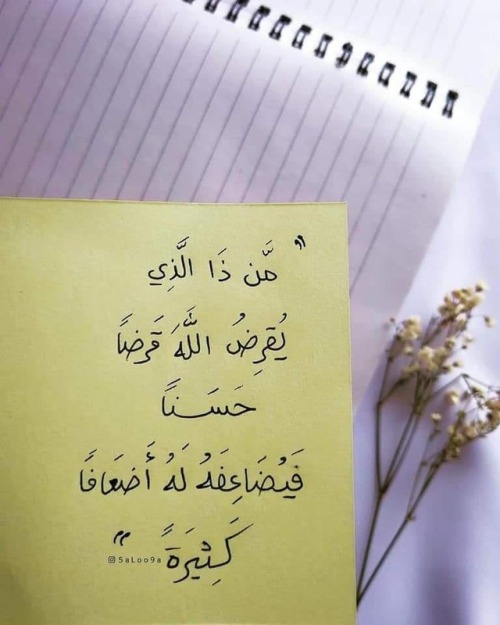 "مَّن ذَا الَّذِي
يُقرِضُ اللَّهَ قَرضًا
حَسَنًا
فَيُضَاعِفَهُ لَهُ أَضعَافًا
كَثِيرَةً "
@5aLoo9a